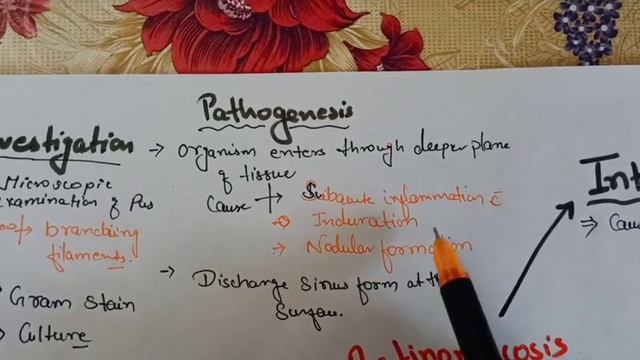 Pathogenesis
→ Organism enters through deeper plane
of tissue
Cause → Subacute inflammation c̄
→ Induration
→ Nodular formation
→ Discharge sinus form at
vestigation
Microscopic
examination of Pus
branching
filaments.
Gram stain
Culture
Int
⇒ Cau